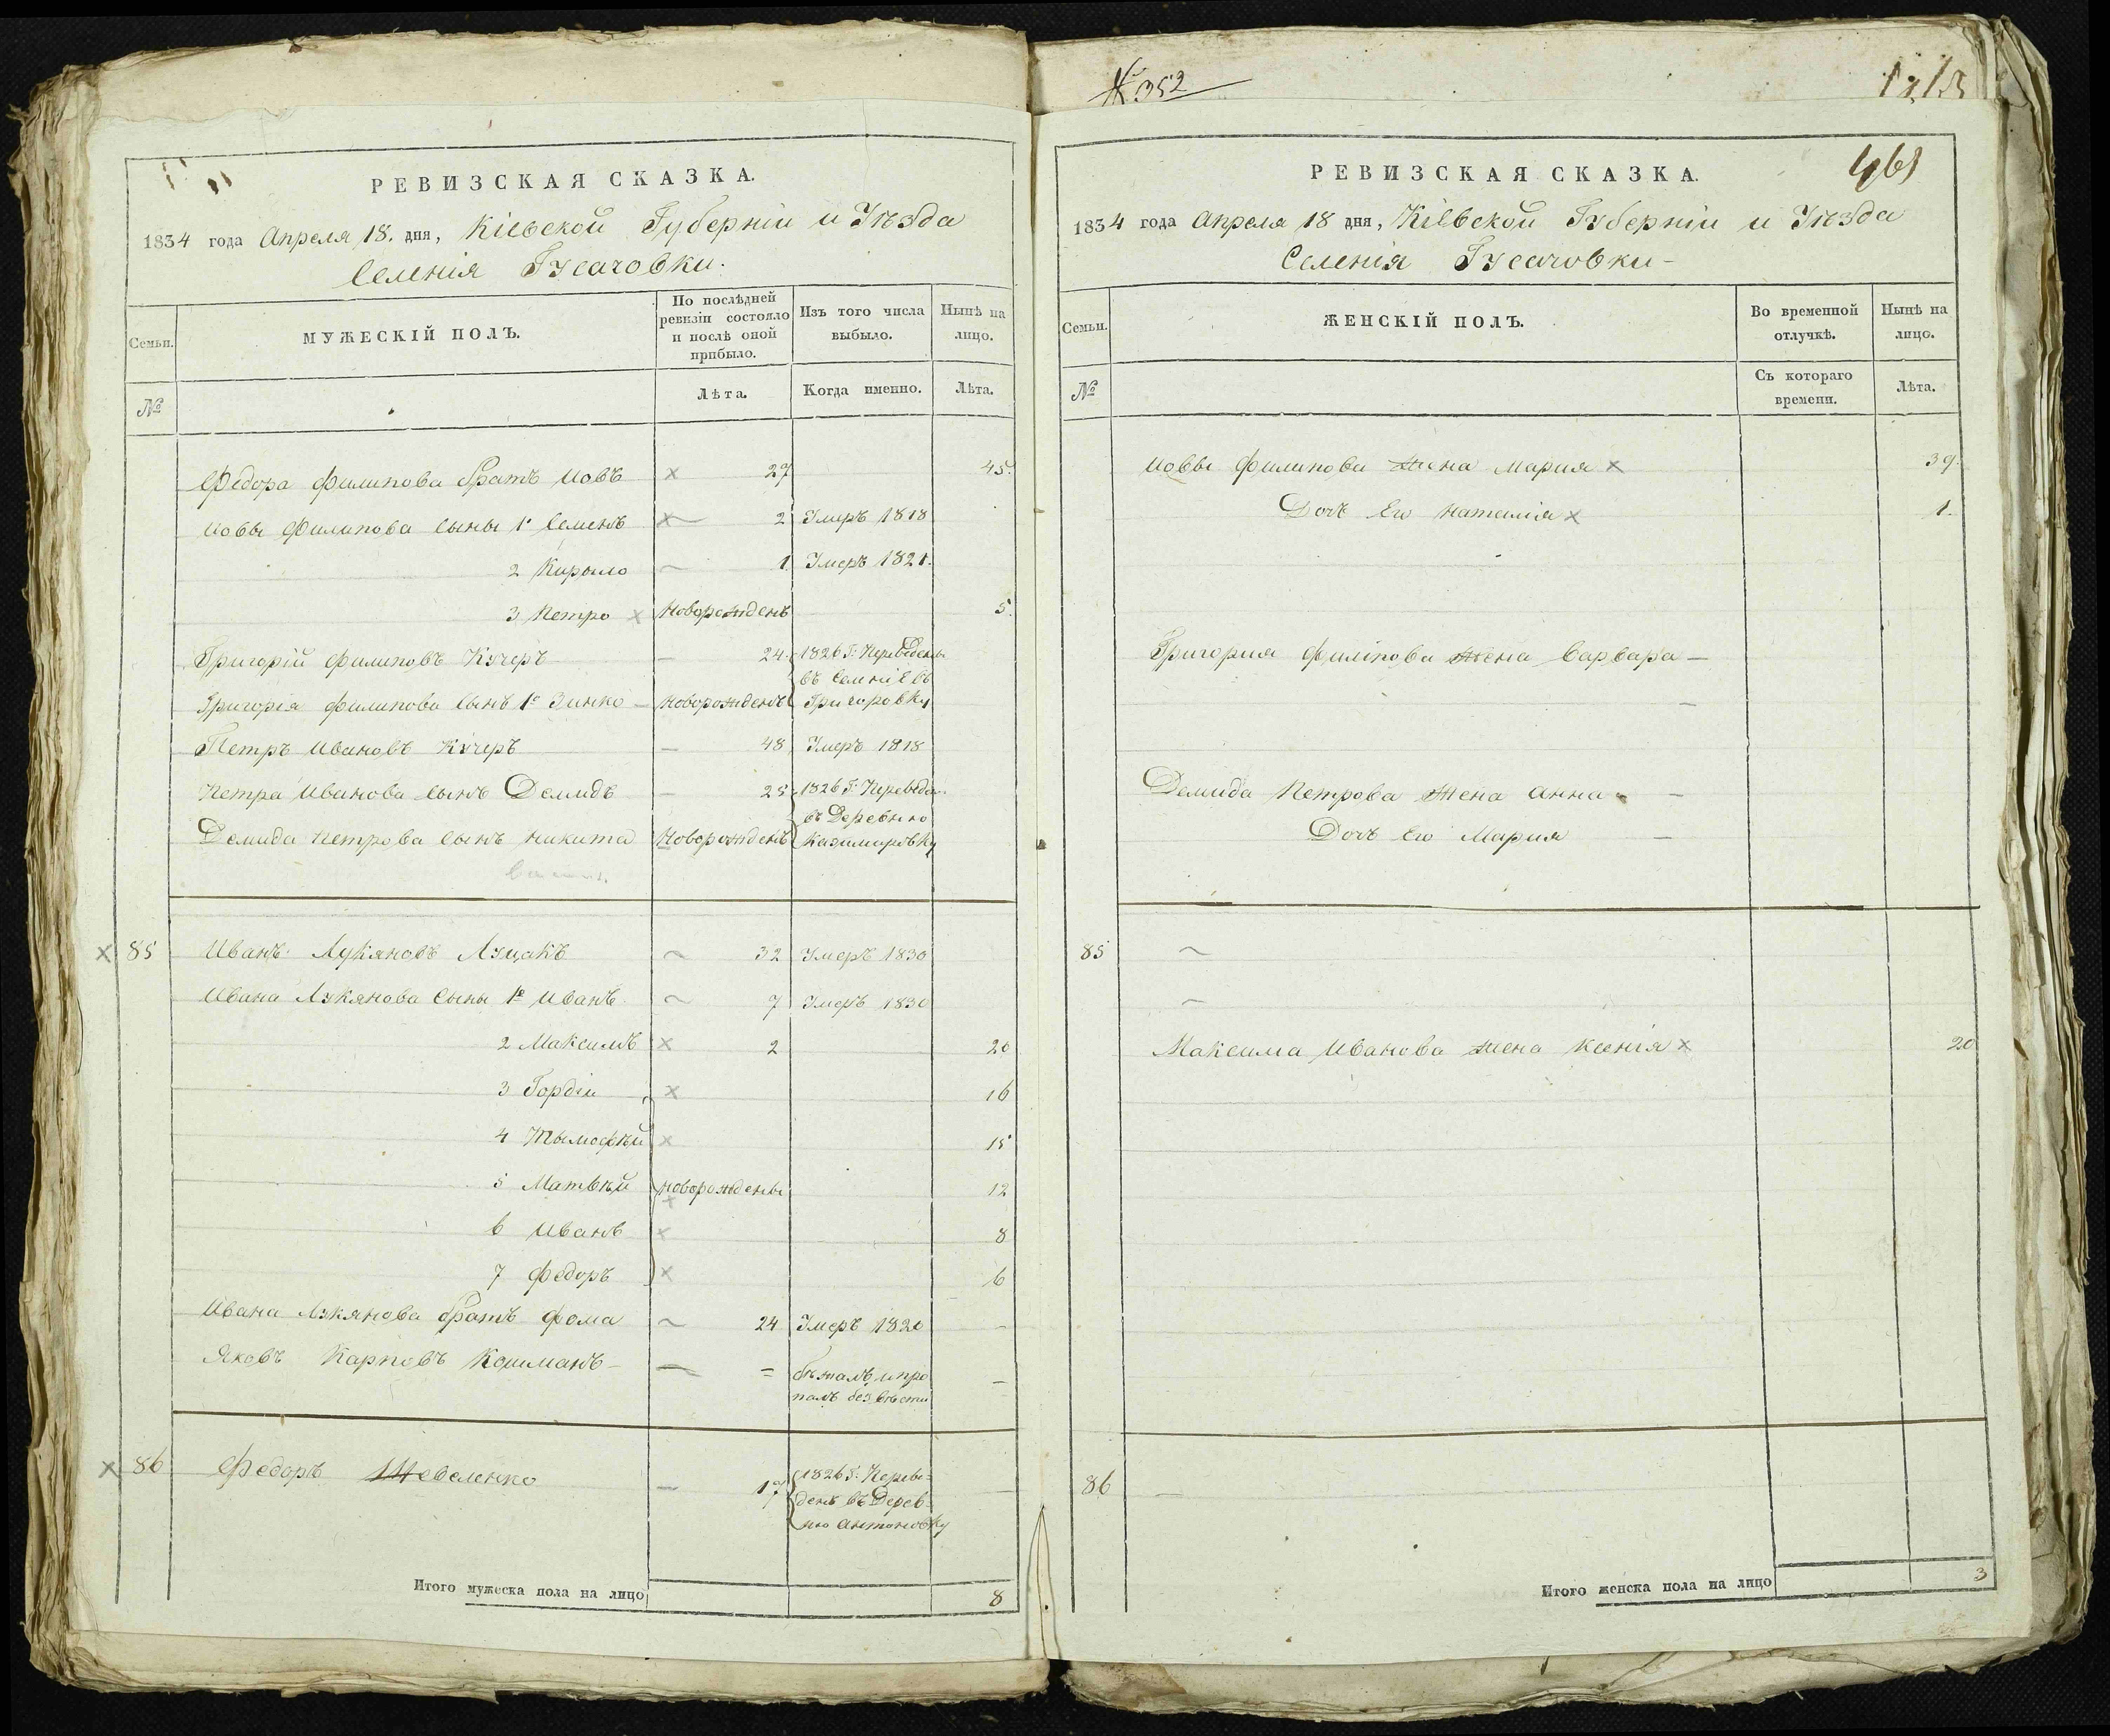 РЕВИЗСКАЯ СКАЗКА.
1834 года Апреля 18. дня, Кіевской Губерніи и Уѣзда
Селенія Гусачовки.
Семьи.
МУЖЕСКІЙ ПОЛЪ.
По послѣдней ревизіи состояло и послѣ оной прибыло.
Изъ того числа выбыло.
Нынѣ на лицо.
№
Лѣта.
Когда именно.
Лѣта.
Федора Филипова братъ Иовъ × 27 45.
Иовы Филипова сыны 1й Семенъ × 2 Умеръ 1818
2 Кирыло 1 Умеръ 1821.
3 Петро × Новорожденъ 5.
Григорій Филиповъ Кучеръ — 24. 1826 Г: Переведены
въ Селніе въ
Григорія Филипова сынъ 1й Зинко — Новорожденъ Григоровку
Петръ Ивановъ Кучеръ — 48 Умеръ 1818
Петра Иванова сынъ Демидъ — 25 1826 Г: Переведен.
въ Деревню
Демида Петрова сынъ Никита Новорожденъ Казимировку
× 85 Иванъ Лукяновъ Луцакъ 32 Умеръ 1830
Ивана Лукянова сыны 1й Иванъ 7 Умеръ 1830
2 Максимъ × 2 20
3 Гордій × 16
4 Тымофѣй × 15
5 Матвѣй новорождены × 12
6 Иванъ × 8
7 Федоръ × 6
Ивана Лукянова братъ Фома 24 Умеръ 1820 —
Яковъ Карповъ Кошманъ — = бѣжалъ и про
палъ без вѣсти —
× 86 Федоръ Шевеленко — 17 1826 Г: Переве=
денъ въ Дерев=
ню Антоновку —
Итого мужеска пола на лицо 8
№ 352
461
РЕВИЗСКАЯ СКАЗКА.
1834 года Апреля 18 дня, Кіевской Губерніи и Уѣзда
Селенія Гусачовки —
Семьи.
ЖЕНСКІЙ ПОЛЪ.
Во временной отлучкѣ.
Нынѣ на лицо.
№
Съ котораго времени.
Лѣта.
Иовы Филипова жена Мария × 39.
Дочъ Его Наталия × 1.
Григория Филипова жена Варвара —
Демида Петрова жена Анна —
Дочъ Его Мария —
85
Максима Иванова жена Ксенія × 20
86 —
Итого женска пола на лицо 3